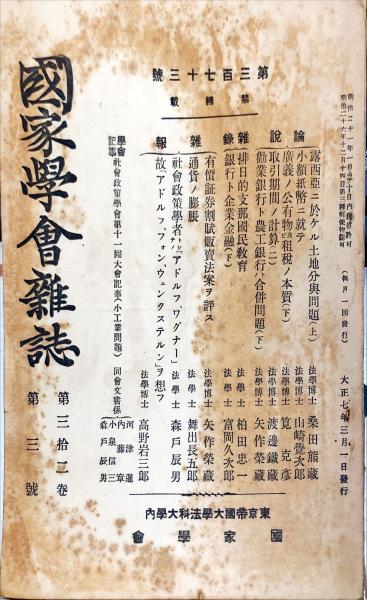 明治二十一年一月二十日內務省許可
明治二十六年十二月十四日第三種郵便物認可
(例月一回發行)
大正七年三月一日發行
第三百七十三號
禁轉載
論說
露西亞ニ於ケル土地分與問題(上) 法學博士 桑田熊藏
小額紙幣ニ就テ 法學博士 山崎覺次郎
廣義ノ公有物ト租稅ノ本質(下) 法學博士 筧克彥
取引期間ノ計算(二) 法學博士 渡邊鐵藏
勸業銀行ト農工銀行ノ合併問題(下) 法學博士 矢作榮藏
雜錄
排日的支那國民敎育 法學士 柏田忠一
銀行ト企業金融(下) 法學士 富岡久次郎
雜報
「有價証券割賦販賣法案」ヲ評ス 法學博士 矢作榮藏
通貨ノ膨脹 法學士 舞出長五郎
社會政策學者トシテノ「アドルフ、ワグナー」 法學士 森戶辰男
故「アドルフ、フォン、ウェンクステルン」ヲ想フ 法學博士 高野岩三郎
學會記事
社會政策學會第十一回大會記事(小工業問題) 同會文書係 河津暹 內藤章 小泉信三 森戶辰男
東京帝國大學法科大學內
國家學會
國家學會雜誌
第三拾二卷
第三號